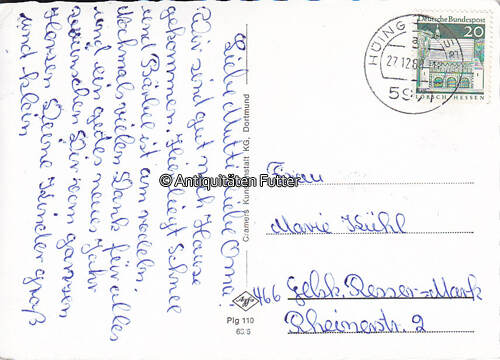 Liebe Mutti, liebe Oma!
Wir sind gut nach Hause
gekommen. Hier liegt Schnee
und Bärbel ist am rodeln.
Nochmals vielen Dank für alles
und ein gutes neues Jahr
wünschen Dir von ganzem
Herzen Deine Kinder groß
und klein
© Antiquitäten Futter
Cramers Kunstanstalt KG, Dortmund
Plg 110
Deutsche Bundespost
20
LORSCH/HESSEN
HÜING
27.12.6
59
Frau
Marie Kühl
466 Gelsk. Resser-Mark
Rheinerstr. 2